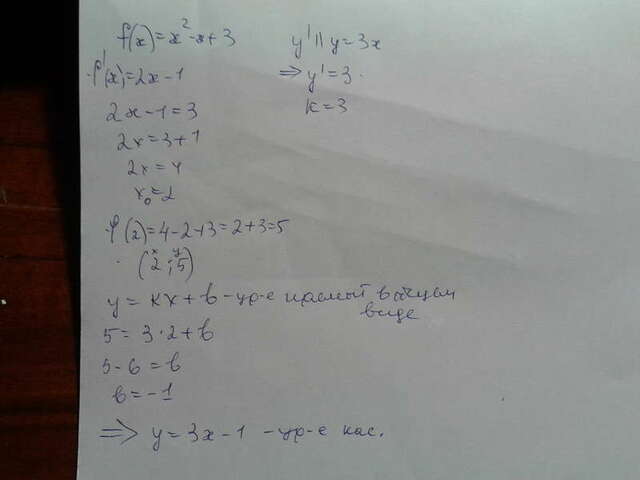 f(x)=x²-x+3
y' || y=3x
f'(x)=2x-1
⇒ y'=3
k=3
2x-1=3
2x=3+1
2x=4
x₀=2
f(x)=4-2+3=2+3=5
x y
(2;5)
y=kx+b-ур-е прямой в общем
виде
5=3·2+b
5-6=b
b=-1
⇒ y=3x-1 -ур-е кас.